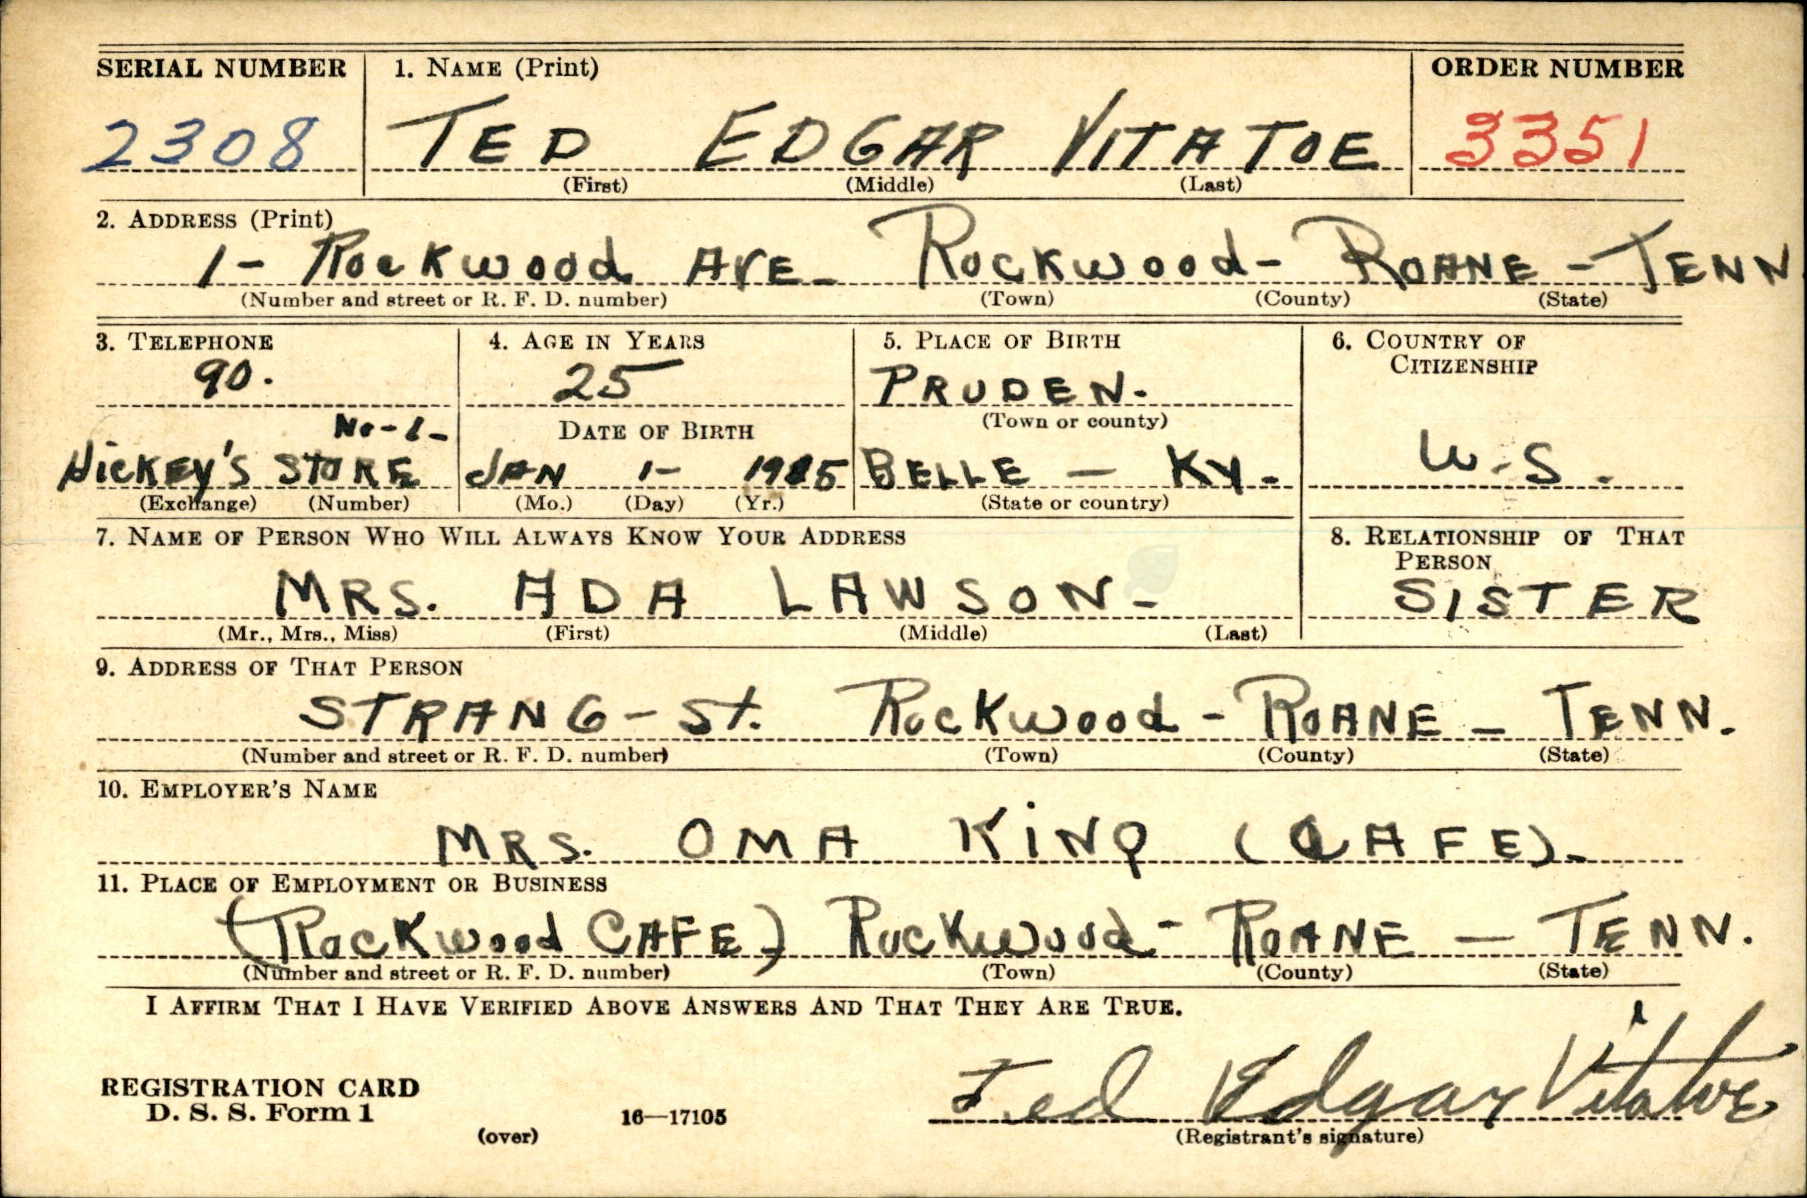 SERIAL NUMBER 1. NAME (Print) ORDER NUMBER
2308 TED EDGAR VITATOE 3351
(First) (Middle) (Last)
2. ADDRESS (Print)
1- Rockwood AVE- Rockwood- ROANE - TENN
(Number and street or R. F. D. number) (Town) (County) (State)
3. TELEPHONE 4. AGE IN YEARS 5. PLACE OF BIRTH 6. COUNTRY OF
CITIZENSHIP
90. 25 PRUDEN.
(Town or county)
No-1- DATE OF BIRTH
HICKEY'S STORE JAN 1- 1915 BELLE - KY. U.S.
(Exchange) (Number) (Mo.) (Day) (Yr.) (State or country)
7. NAME OF PERSON WHO WILL ALWAYS KNOW YOUR ADDRESS 8. RELATIONSHIP OF THAT
PERSON
MRS. ADA LAWSON- SISTER
(Mr., Mrs., Miss) (First) (Middle) (Last)
9. ADDRESS OF THAT PERSON
STRANG - St. Rockwood - ROANE - TENN.
(Number and street or R. F. D. number) (Town) (County) (State)
10. EMPLOYER'S NAME
MRS. OMA KING (CAFE).
11. PLACE OF EMPLOYMENT OR BUSINESS
(Rockwood CAFE) Rockwood- ROANE - TENN.
(Number and street or R. F. D. number) (Town) (County) (State)
I AFFIRM THAT I HAVE VERIFIED ABOVE ANSWERS AND THAT THEY ARE TRUE.
REGISTRATION CARD
D. S. S. Form 1 16—17105 Ted Edgar Vitatoe
(over) (Registrant's signature)